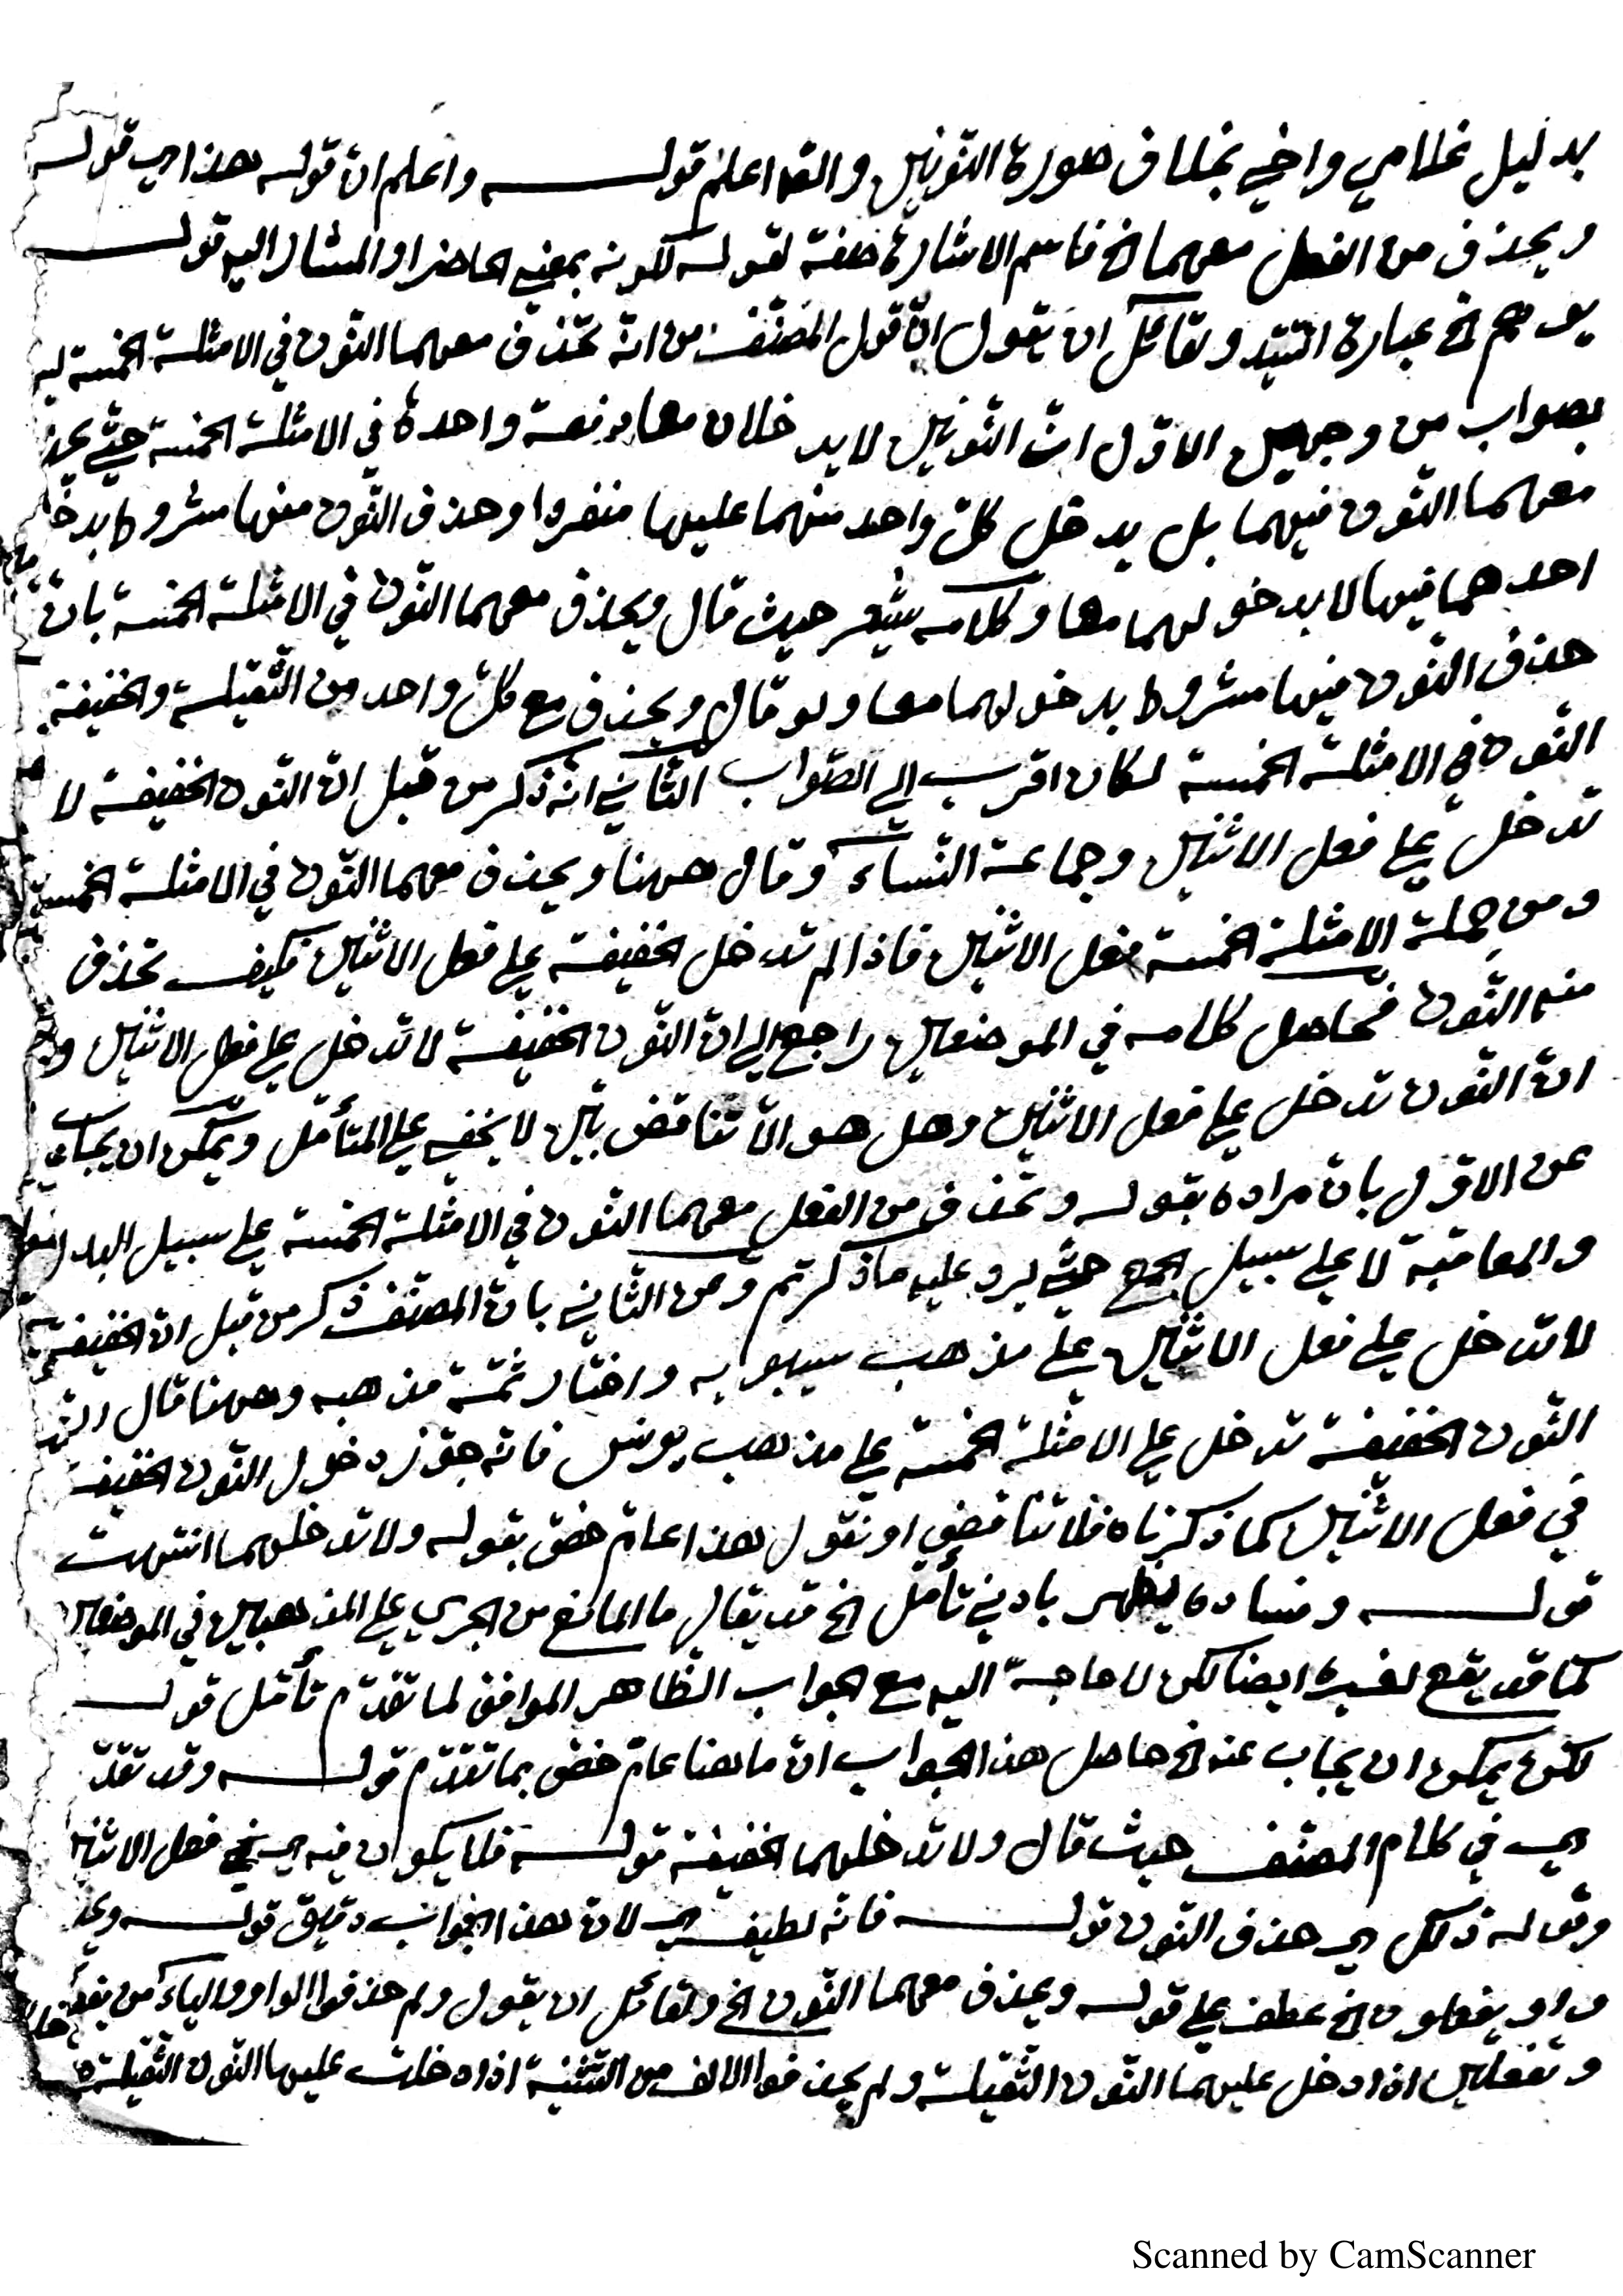 بدليل غلامي واخي بخلاف صورة النونين والله اعلم قولـــه واعلم ان قوله هذا اي قوله
ويحذف من الفعل معهما الخ فاسم الاشارة صفة لقوله لكونه بمعنى الحاضر او المشار اليه قولـــه
الخ عبارة السيد ولقائل ان يقول انّ قول المصنّف من انه تحذف معهما النّون في الامثلة الخمسة ليس
بصواب من وجهين الاوّل انّ النّونين لا يدخلان معا دفعة واحدة في الامثلة الخمسة حتّى يحذف
معهما النّون فيهما بل يدخل كلّ واحد منهما عليها منفردا وحذف النّون منها مشروط بدخول
احدهما فيها لا بدخولهما معا وكلامه يشعر حيث قال ويحذف معهما النّون في الامثلة الخمسة بانّ
حذف النّون فيها مشروط بدخولهما معا ولو قال ويحذف مع كلّ واحد من الثّقيلة والخفيفة
النّون في الامثلة الخمسة لكان اقرب الى الصّواب الثّاني انه ذكر من قبل انّ النّون الخفيفة لا
تدخل على فعل الاثنين وجماعة النّساء وقال ههنا ويحذف معهما النّون في الامثلة الخمسة
ومن جملة الامثلة الخمسة فعل الاثنين فاذا لم تدخل الخفيفة على فعل الاثنين فكيف تحذف
منه النّون فحاصل كلامه في الموضعين راجع الى انّ النّون الخفيفة لا تدخل على فعل الاثنين و
انّ النّون تدخل على فعل الاثنين وهل هو الّا تناقض بيّن لا يخفى على المتأمّل ويمكن ان يجاب
عن الاوّل بانّ مراده بقوله وتحذف من الفعل معهما النّون في الامثلة الخمسة على سبيل البدل
والمعاقبة لا على سبيل الجمع حتّى يرد عليه ما ذكرتم وعن الثّاني بانّ المصنّف ذكر من قبل انّ الخفيفة
لا تدخل على فعل الاثنين على مذهب سيبويه واختار ثمّة مذهبه وههنا قال انّ
النّون الخفيفة تدخل على الامثلة الخمسة على مذهب يونس فانه جوّز دخول النّون الخفيفة
في فعل الاثنين كما ذكرناه فلا تناقض او نقول هذا عامّ خصّ بقوله ولا تدخلهما انتهت
قولـــه وفساده يظهر بادنى تأمّل الخ قد يقال ما المانع من الجري على المذهبين في الموضعين
كما قد يقع لغيره ايضا لكن لا حاجة اليه مع الجواب الظّاهر الموافق لما تقدّم تأمّل قولـــه
لكن يمكن ان يجاب عنه الخ حاصل هذا الجواب انّ ما هنا عامّ خصّ بما تقدّم قولـــه وقد تقدّم
اي في كلام المصنّف حيث قال ولا تدخلهما الخفيفة قولـــه فلا يكون فيه اي في فعل الاثنين
وقوله ذلك اي حذف النّون قولـــه فانه لطيف اي لانّ هذا الجواب دقيق قولـــه ويحذف
واو يفعلون الخ عطف على قوله ويحذف معهما النّون الخ ولقائل ان يقول ولم حذفوا الواو والياء من
وتفعلين اذا دخل عليهما النّون الثّقيلة ولم يحذفوا الالف من التّثنية اذا دخلت عليها النّون الثّقيلة
Scanned by CamScanner